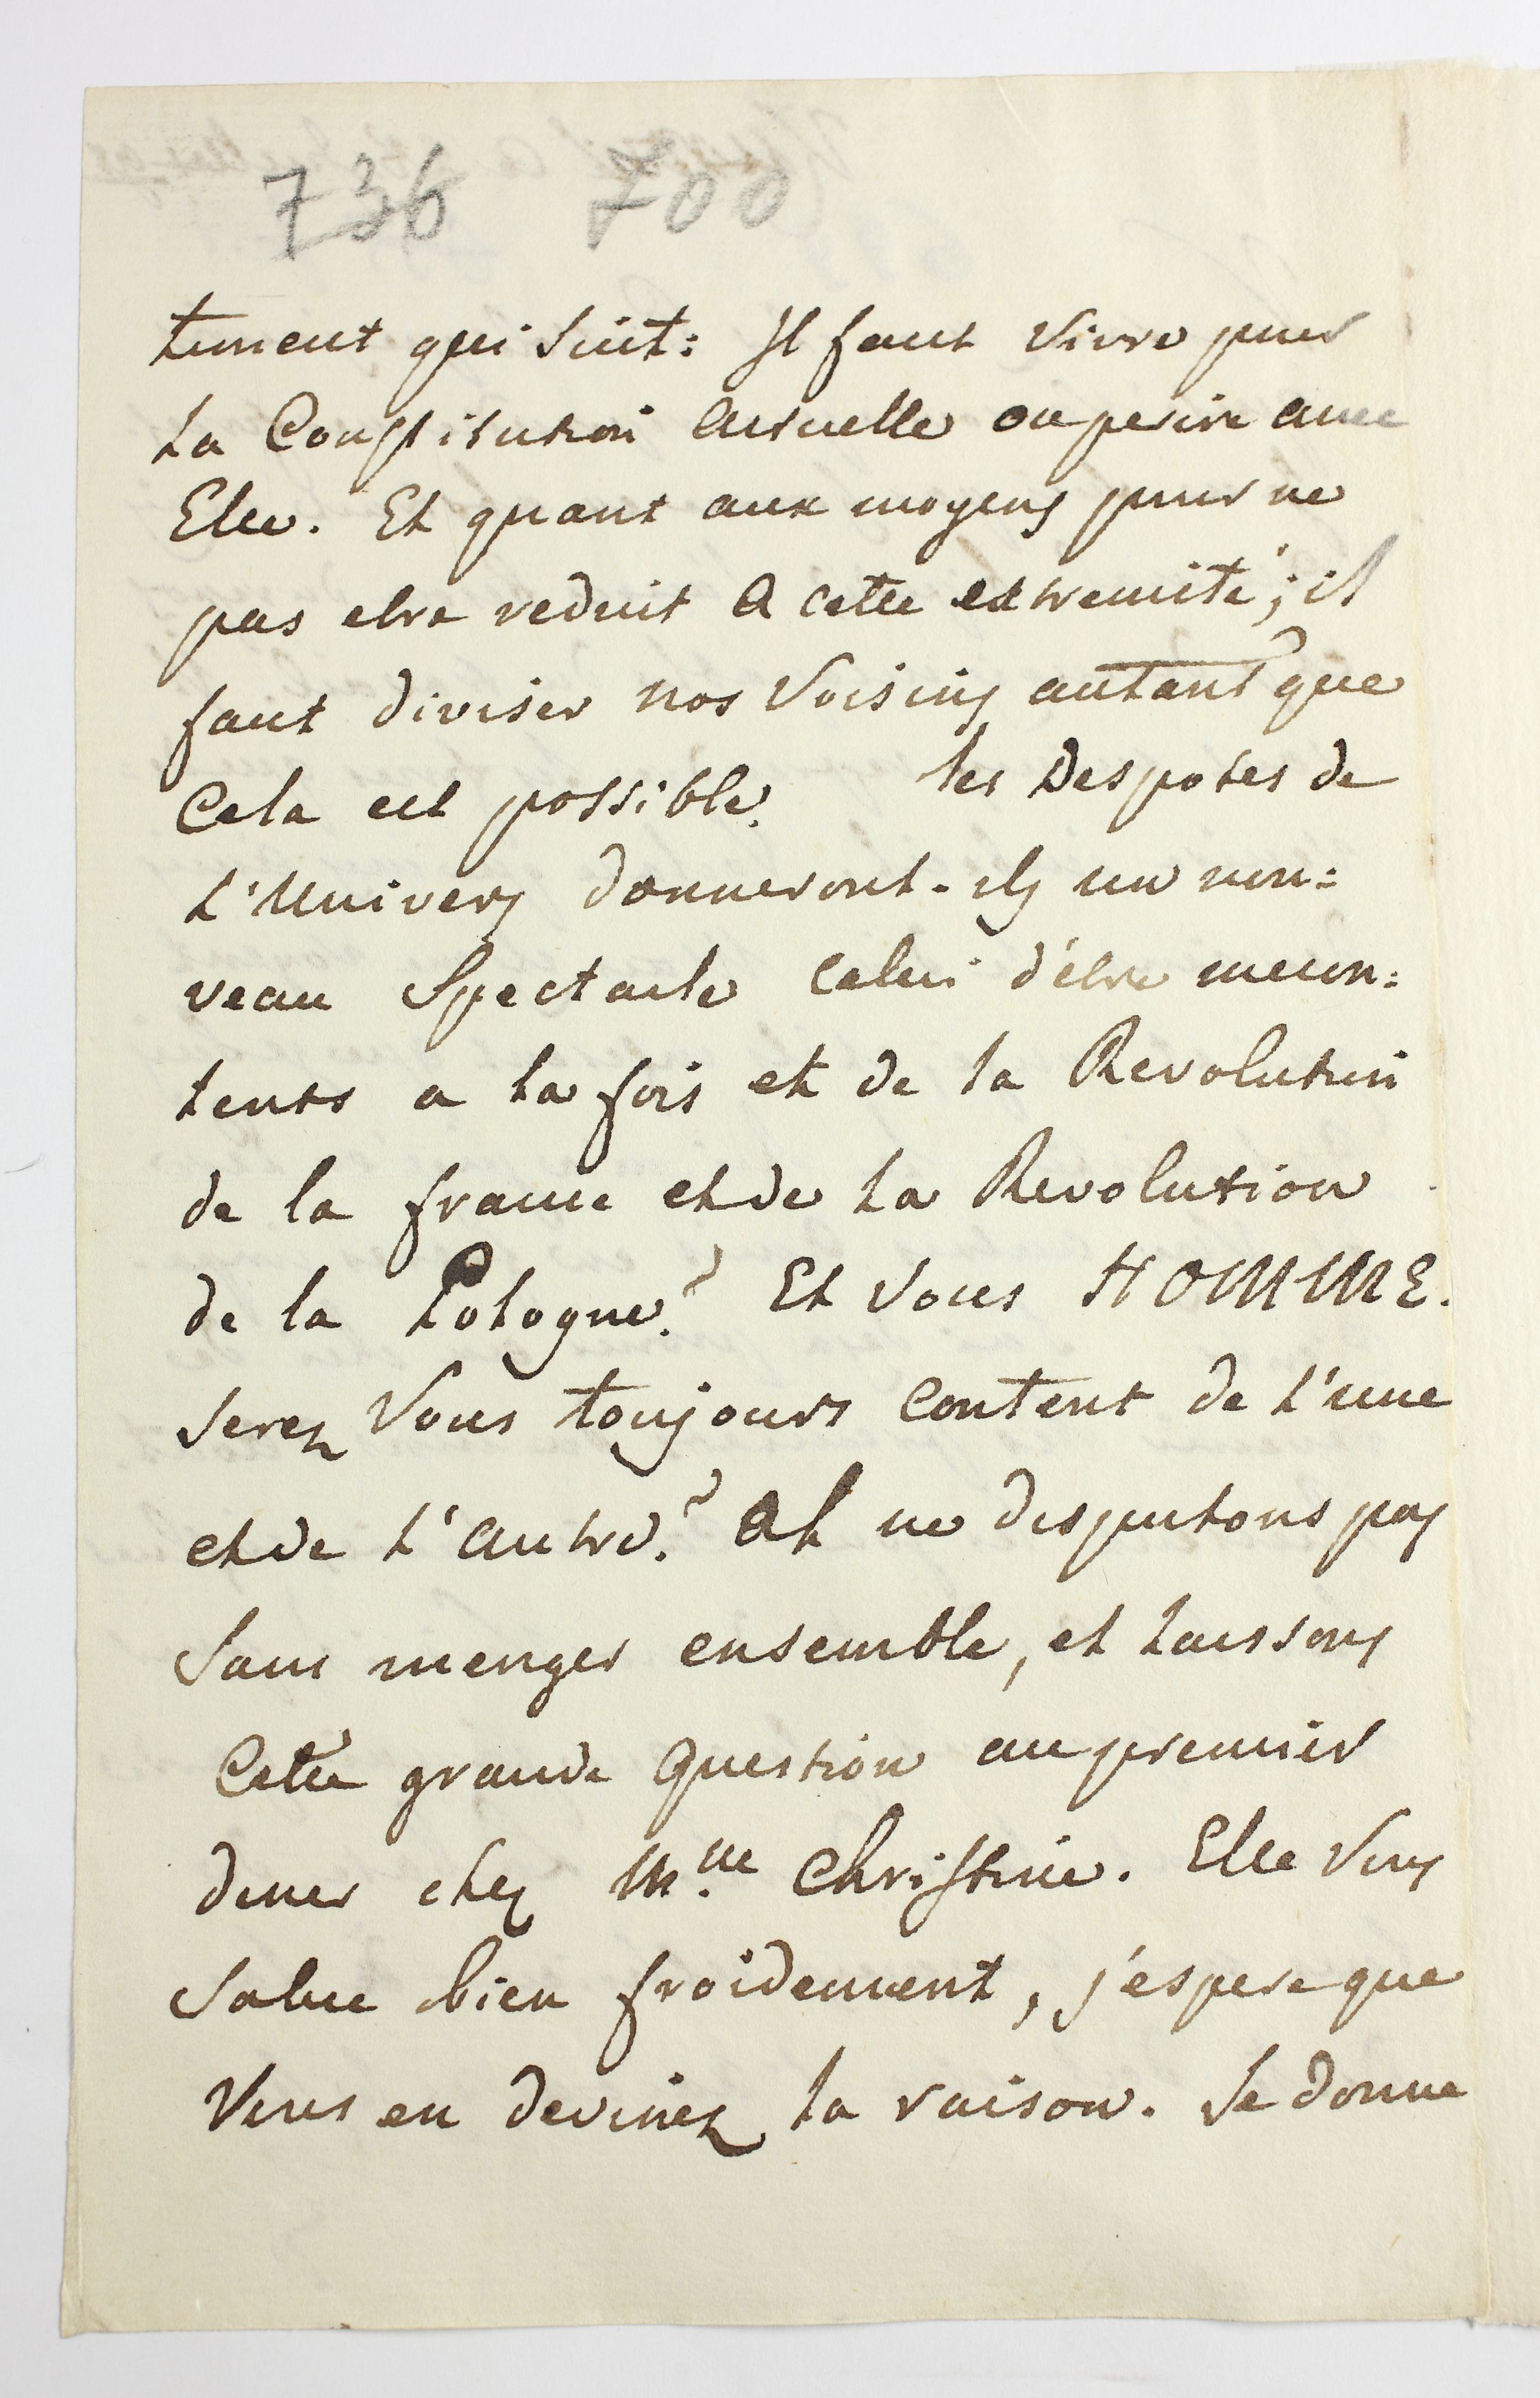 736 700
timent qui suit: Il faut vivre pour
la Constitution actuelle ou perire avec
Elle. Et quant aux moyens pour ne
pas etre reduit a cette extremité; il
faut diviser nos Voisins autant que
Cela est possible. les Despotes de
l'Univers donneront-ils un nou=
veau Spectacle celui d'être mecon=
tents a la fois et de la Revolution
de la france et de la Revolution
de la Pologne? Et vous HOMME.
serez Vous toujours content de l'une
et de l'autre? Ah ne disputons pas
sans menger ensemble, et laissons
Cette grande question au premier
diner chez M.lle Christine. Elle Vous
salue bien froidement, j'espere que
Vous en devinez la raison. Je donne